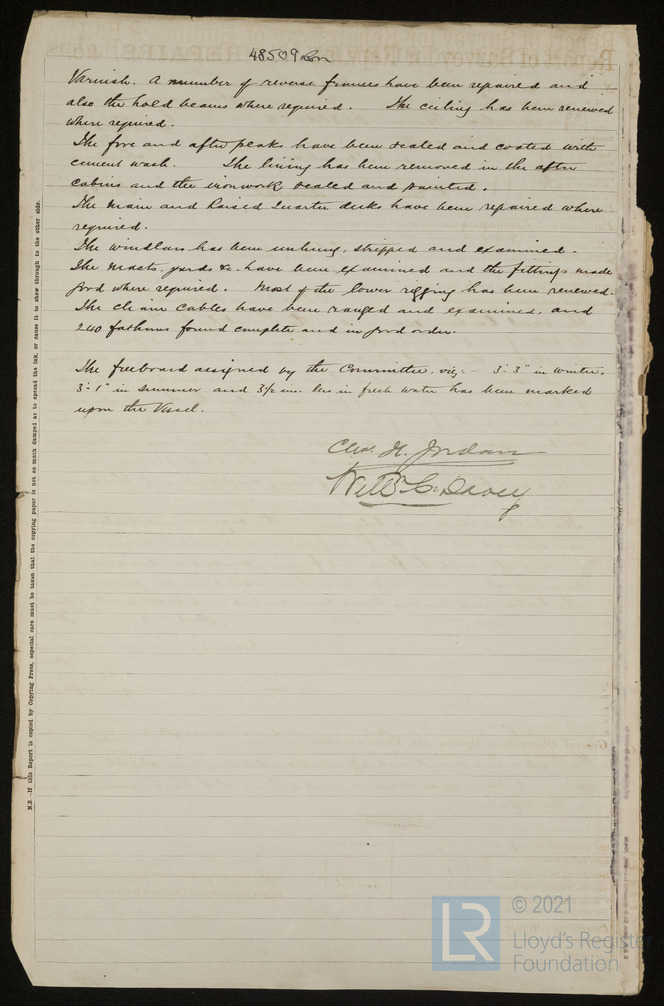 48509 Lon
Varnish. A number of reverse frames have been repaired and
also the hold beams where required. The ceiling has been renewed
where required.
The fore and after peaks have been scaled and coated with
cement wash. The lining has been removed in the after
cabins and the ironwork scaled and painted.
The Main and Raised Quarter decks have been repaired where
required.
The windlass has been unhung, stripped and examined.
The Masts, yards &c. have been examined and the fittings made
good where required. Most of the lower rigging has been renewed.
The chain cables have been ranged and examined, and
240 fathoms found complete and in good order.
The freeboard assigned by the Committee, viz:- 3'-3" in winter,
3'-1" in Summer and 3½ ins. less in fresh water has been marked
upon the Vessel.
Chas. H. Jordan
Davey
N.B.—If this Report is copied by Copying Press, especial care must be taken that the copying paper is not so much damped as to spread the ink, or cause it to show through to the other side.
LR
© 2021
Lloyd's Register
Foundation